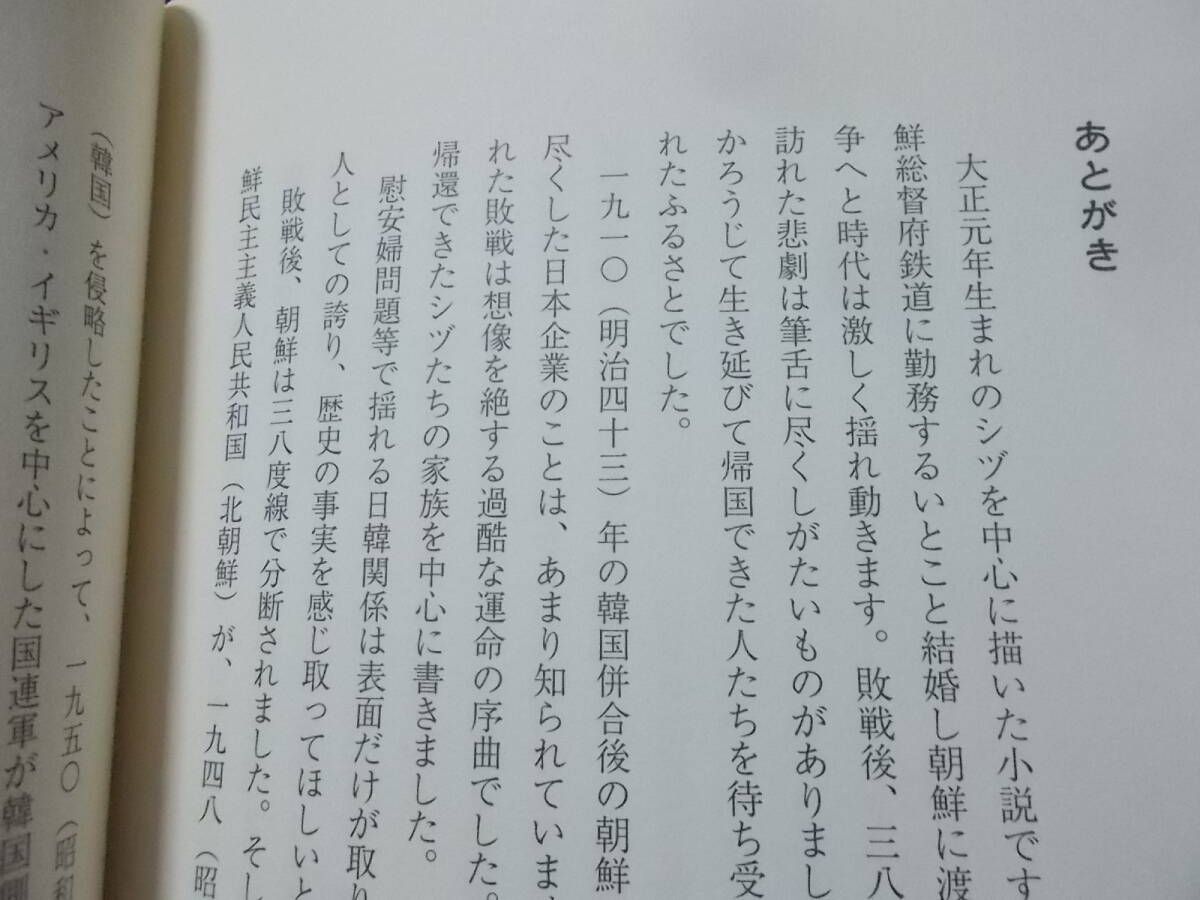 あとがき
大正元年生まれのシヅを中心に描いた小説です
鮮総督府鉄道に勤務するいとこと結婚し朝鮮に渡
争へと時代は激しく揺れ動きます。敗戦後、三八
訪れた悲劇は筆舌に尽くしがたいものがありまし
かろうじて生き延びて帰国できた人たちを待ち受
れたふるさとでした。
一九一〇(明治四十三)年の韓国併合後の朝鮮
尽くした日本企業のことは、あまり知られていま
れた敗戦は想像を絶する過酷な運命の序曲でした。
帰還できたシヅたちの家族を中心に書きました。
慰安婦問題等で揺れる日韓関係は表面だけが取り
人としての誇り、歴史の事実を感じ取ってほしいと
敗戦後、朝鮮は三八度線で分断されました。そし
鮮民主主義人民共和国(北朝鮮)が、一九四八(昭
(韓国)を侵略したことによって、一九五〇(昭和
アメリカ・イギリスを中心にした国連軍が韓国側